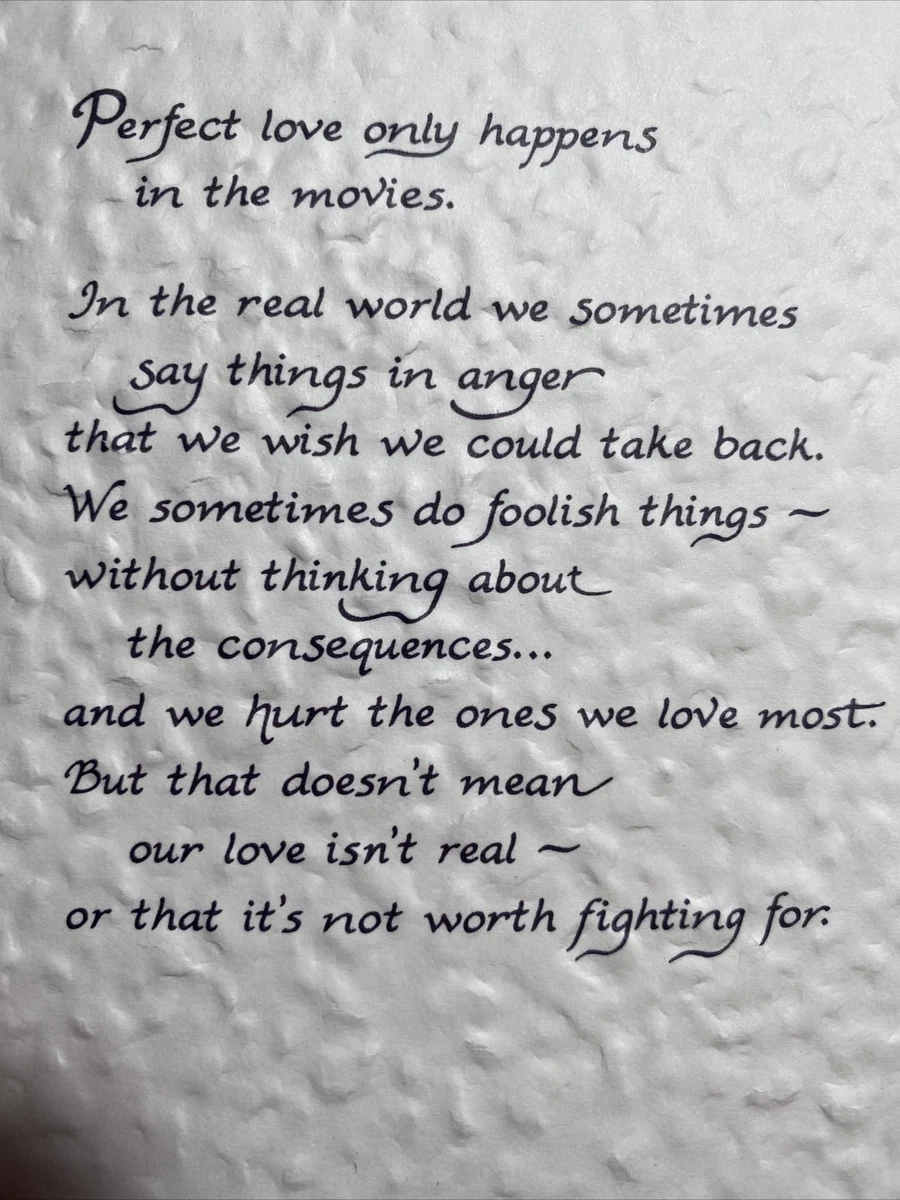 Perfect love only happens
in the movies.
In the real world we sometimes
say things in anger
that we wish we could take back.
We sometimes do foolish things ~
without thinking about
the consequences...
and we hurt the ones we love most.
But that doesn't mean
our love isn't real ~
or that it's not worth fighting for.